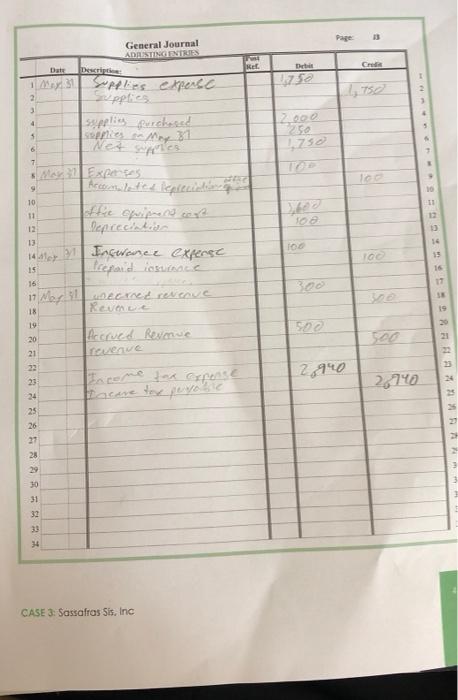 Page: 13
General Journal
ADJUSTING ENTRIES
Date Description: Post Ref. Debit Credit
1 May 31 Supplies expense 1,750 1
2 Supplies 1,750 2
3 3
4 supplies purchased 2,000 4
5 supplies on May 31 250 5
6 Net supplies 1,750 6
7 7
8 May 31 Expenses 100 8
9 Accumulated Depreciation 100 9
10 10
11 office equipment cost 11
12 Depreciation 100 12
13 13
14 May 31 Insurance expense 100 14
15 Prepaid insurance 100 15
16 16
17 May 31 unearned revenue 300 17
18 Revenue 300 18
19 19
20 Accrued Revenue 500
21 revenue 500 21
22 22
23 Income tax expense 2,940 23
24 Income tax payable 2,940 24
25 25
26 26
27 27
28
29
30
31
32
33
34
CASE 3: Sassafras Sis, Inc